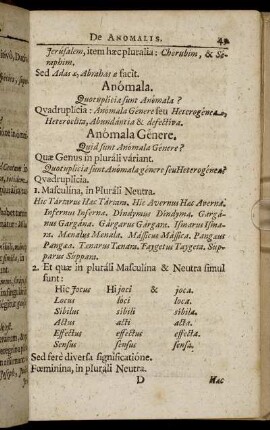 DE ANOMALIS.
Jerusalem, item hæc pluralia: Cherubim, & Se-
raphim.
Sed Adas æ, Abrahas æ facit.
Anómala.
Quotuplicia sunt Anómala?
Quadruplicia: Anómala Génere seu Heterogénea,
Heteroclita, Abundántia & defectiva.
Anómala Génere.
Quid sunt Anómala Génere?
Quæ Genus in pluráli váriant.
Quotuplicia sunt Anómala génere seu Heterogénea?
Quadruplicia.
1. Masculina, in Pluráli Neutra.
Hic Tártarus Hæc Tártara. Hic Avernus Hæc Averna.
Infernus Inferna. Dindymus Dindyma. Gargá-
nus Gargána. Gárgarus Gárgara. Ismarus Isma-
ra. Mænalus Mænala. Mássicus Mássica. Pangæus
Pangæa. Tænarus Tænara. Taygetus Taygeta. Sup-
parus Suppara.
2. Et quæ in pluráli Masculina & Neutra simul
sunt:
Hic Jocus Hi joci & joca.
Locus loci loca.
Sibilus sibili sibila.
Actus acti acta.
Effectus effectus effecta.
Sensus sensus sensa.
Sed ferè diversa significatióne.
Fœminina, in pluráli Neutra.
D Hæc